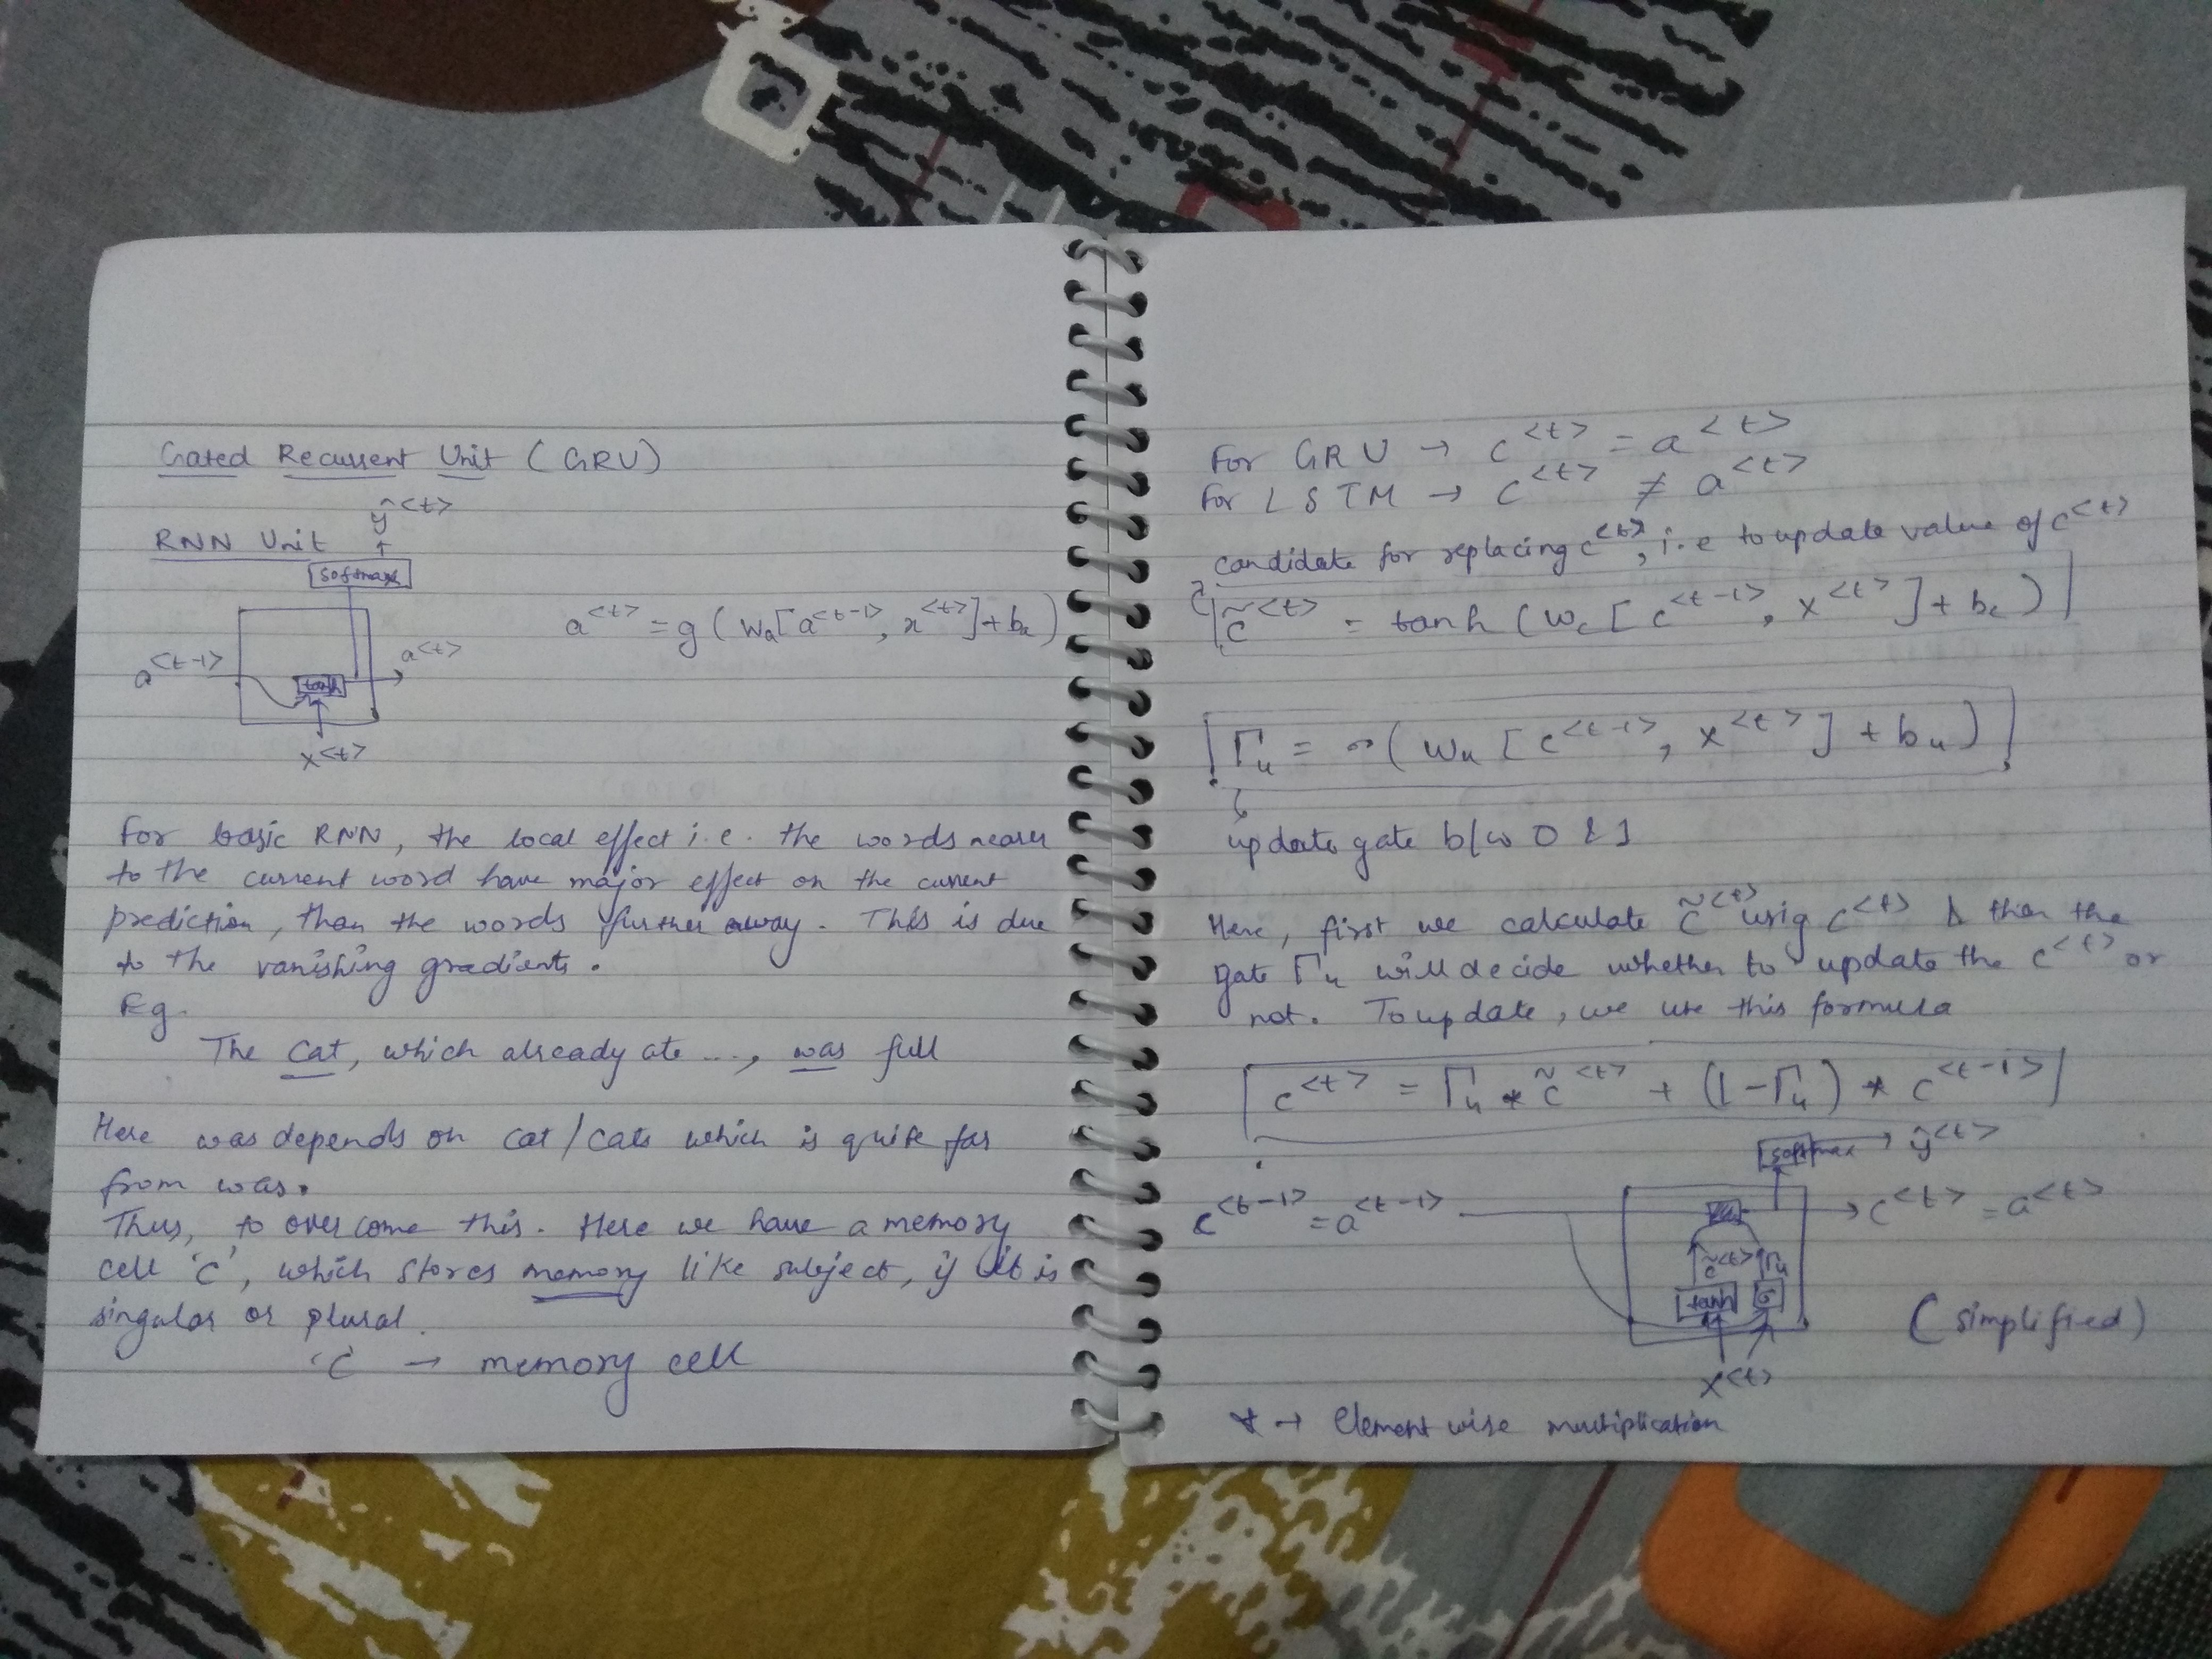 Gated Recurrent Unit (GRU)
ŷ<t>
RNN Unit
softmax
a<t> = g(Wa[a<t-1>, x<t>]+ba)
a<t-1>
tanh
a<t>
x<t>
For basic RNN, the local effect i.e. the words nearer
to the current word have major effect on the current
prediction, than the words further away. This is due
to the vanishing gradients.
Eg.
The cat, which already ate ..., was full
Here was depends on cat/cats which is quite far
from was.
Thus, to overcome this. Here we have a memory
cell 'C', which stores memory like subject, if it is
singular or plural.
'C' → memory cell
For GRU → c<t> = a<t>
For LSTM → c<t> ≠ a<t>
candidate for replacing c<t>, i.e to update value of c<t>
c̃<t> = tanh (Wc[c<t-1>, x<t>]+bc)
Γu = σ(Wu [c<t-1>, x<t>] + bu)
update gate b/w 0 & 1
Here, first we calculate c̃<t> usig c<t> & then the
gate Γu will decide whether to update the c<t> or
not. To update, we use this formula
c<t> = Γu * c̃<t> + (1-Γu) * c<t-1>
softmax → ŷ<t>
c<t-1> = a<t-1>
c<t> = a<t>
c̃<t> Γu
tanh σ
(simplified)
x<t>
* → Element wise multiplication